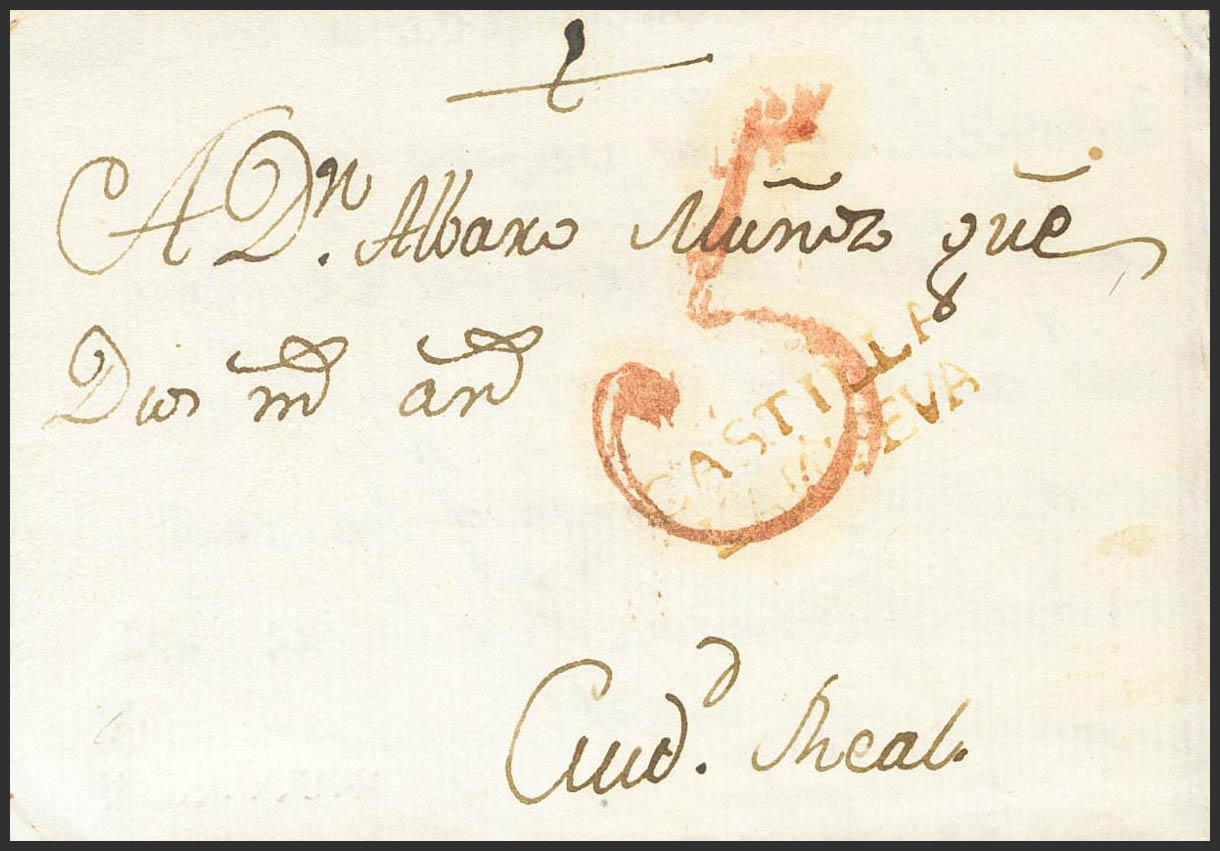 A Dⁿ. Albaro Muñoz que
Dios m̃d añd
5
CASTILLA
LA NUEVA
Ciudᵈ. Rheal.